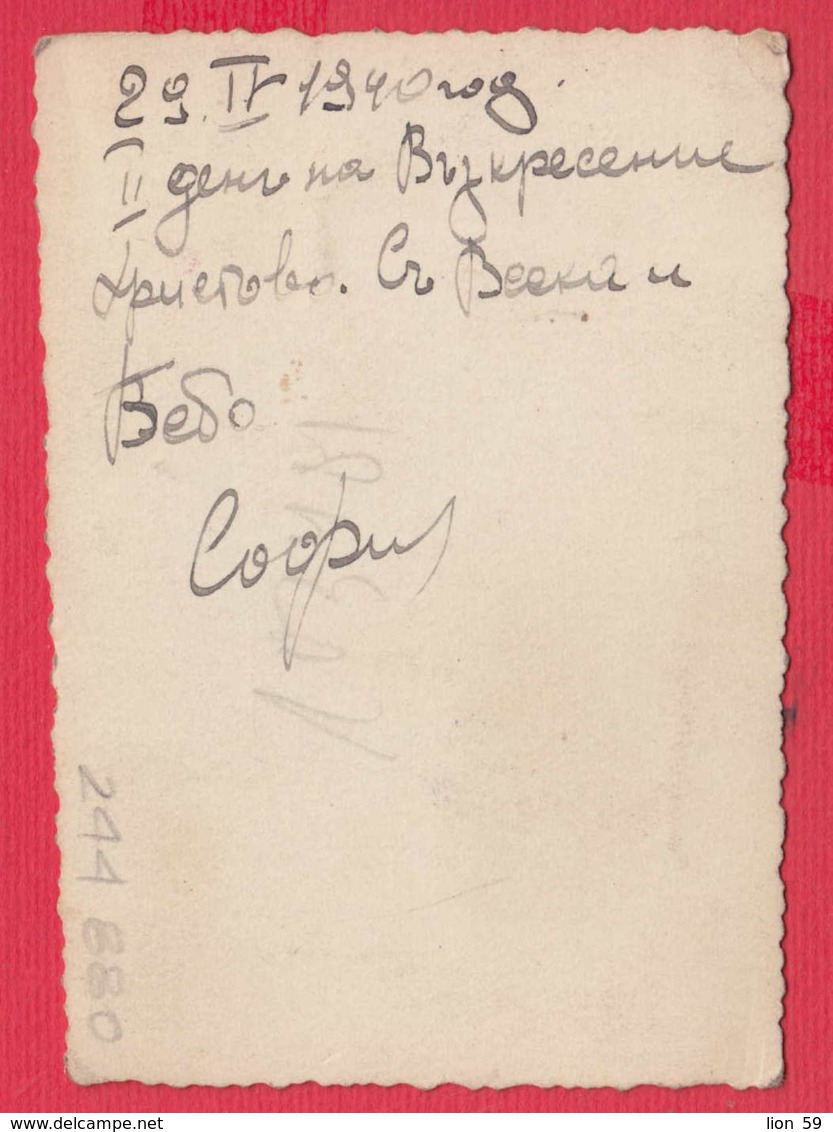 29. IV 1940 год.
II день на Възкресение
Христово. Съ Веска и
Бебо
София
244 880
www.delcampe.net
lion 59